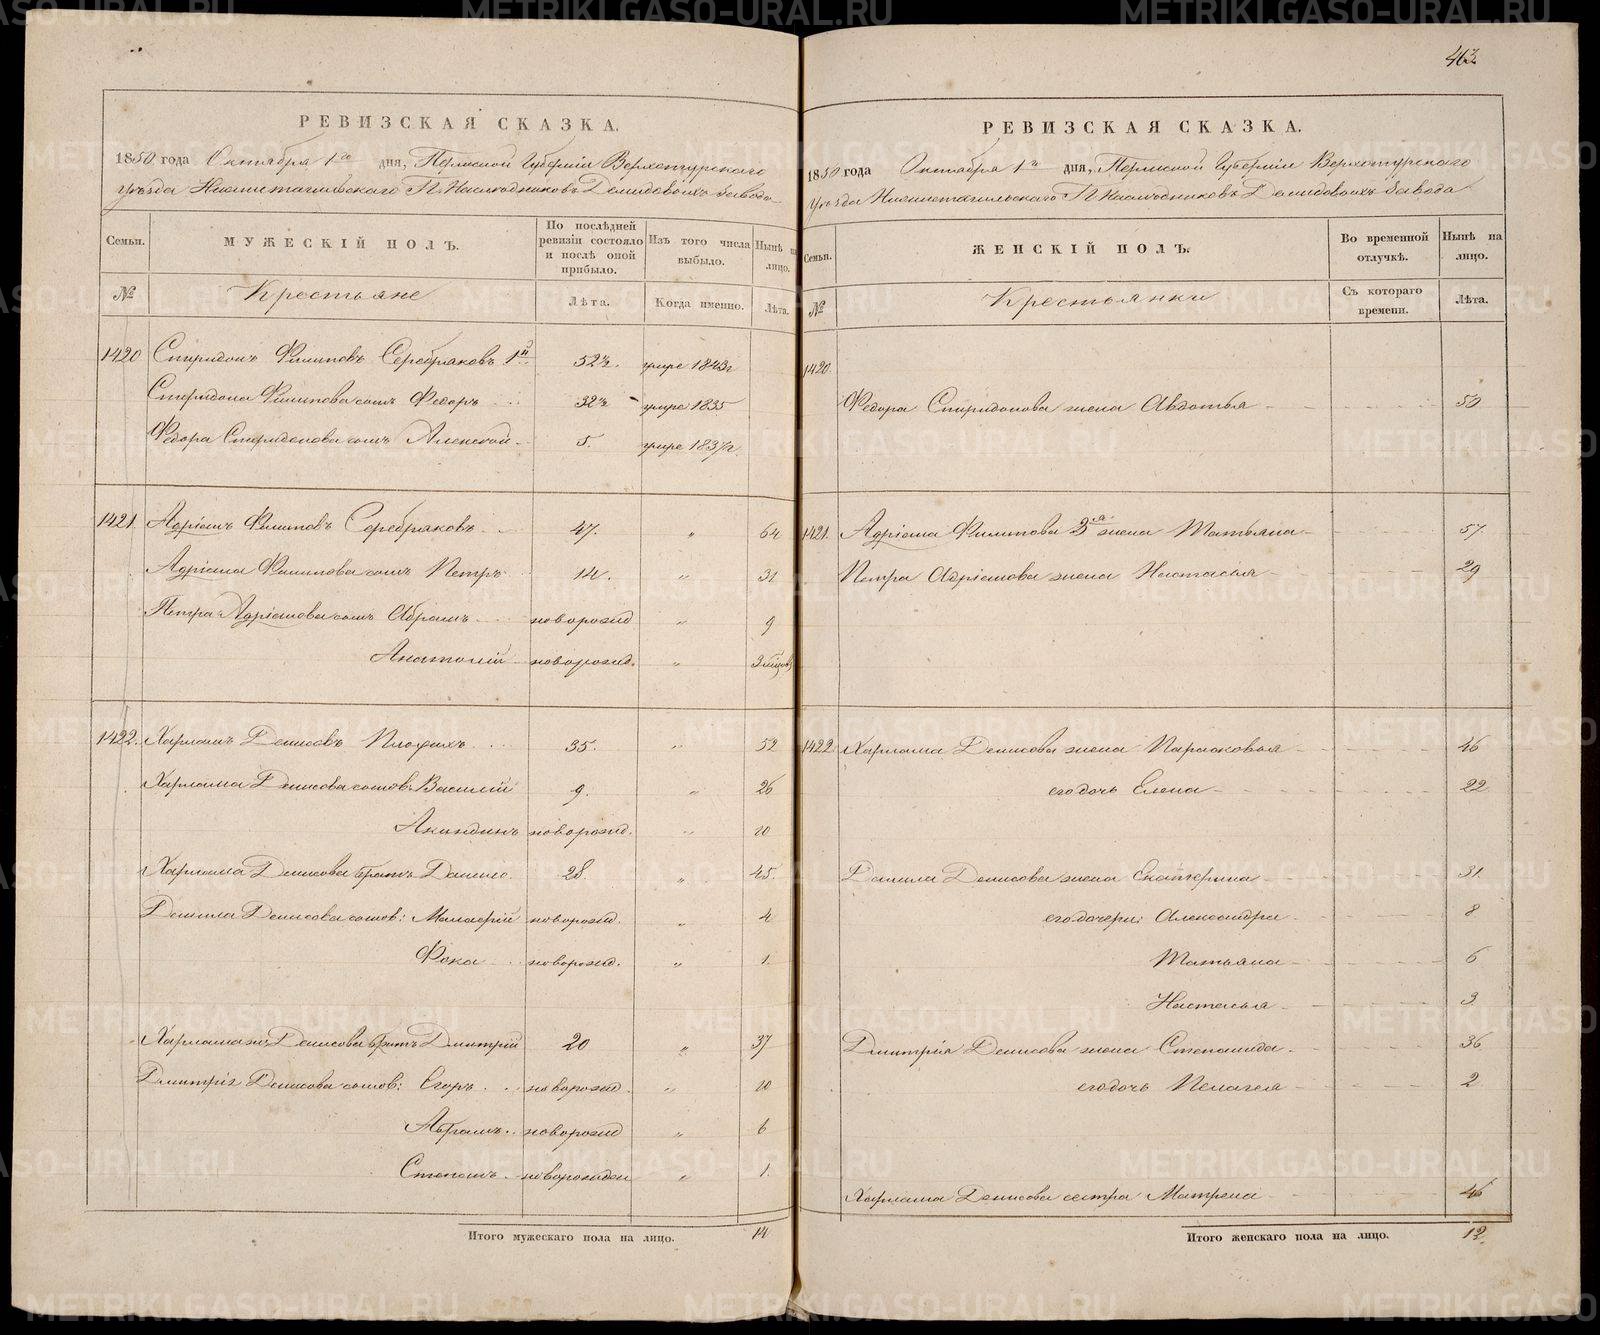 463
РЕВИЗСКАЯ СКАЗКА.
1850 года Октября 1го дня, Пермской Губерніи Верхотурскаго
уѣзда Нижнетагильскаго Г.г. Наслѣдниковъ Демидовыхъ Завода
Семьи.
МУЖЕСКІЙ ПОЛЪ.
По послѣдней ревизіи состояло и послѣ оной прибыло.
Изъ того числа выбыло.
Нынѣ на лицо.
№
Крестьяне
Лѣта.
Когда именно.
Лѣта.
1420 Спиридонъ Филиповъ Серебряковъ 1й 52½. умре 1843г
Спиридона Филипова сынъ Федоръ 32½ умре 1835
Федора Спиридонова сынъ Алексѣй 5. умре 1837г.
1421. Адріанъ Филиповъ Серебряковъ 47. " 64
Адріана Филипова сынъ Петръ 14. " 31
Петра Адріанова сынъ Абрамъ новорожд " 9
Анатолій новорожд. " 3 мѣсяц
1422. Харламъ Денисовъ 35. " 52
Харлама Денисова сынов: Василій 9. " 26
Акиндинъ новорожд. " 10
Харлама Денисова братъ Данило 28 " 45.
Данила Денисова сынов: новорожд. " 4
Фока новорожд. " 1
Харлама Денисова братъ Дмитрій 20 " 37
Дмитрія Денисова сынов: Егоръ новорожд. " 10
Абрамъ новорожд " 6
Степанъ новорожден " 1.
Итого мужескаго пола на лицо. 14
РЕВИЗСКАЯ СКАЗКА.
1850 года Октября 1го дня, Пермской Губерніи Верхотурскаго
уѣзда Нижнетагильскаго Г.г. Наслѣдниковъ Демидовыхъ Завода
Семьи.
ЖЕНСКІЙ ПОЛЪ.
Во временной отлучкѣ.
Нынѣ на лицо.
№
Крестьянки
Съ котораго времени.
Лѣта.
1420.
Федора Спиридонова жена Авдотья 50
1421. Адріана Филипова 3я жена Татьяна 57.
Петра Адріанова жена Настасья 29
1422 Харлама Денисова жена Парасковья 46
его дочь Елена 22
Данила Денисова жена Екатерина 31.
его дочери: Александра 8
Татьяна 6
Настасья 3
Дмитрія Денисова жена Степанида 36
его дочь Пелагея 2
Харлама Денисова сестра Матрена 46
Итого женскаго пола на лицо. 12.
METRIKI.GASO-URAL.RU